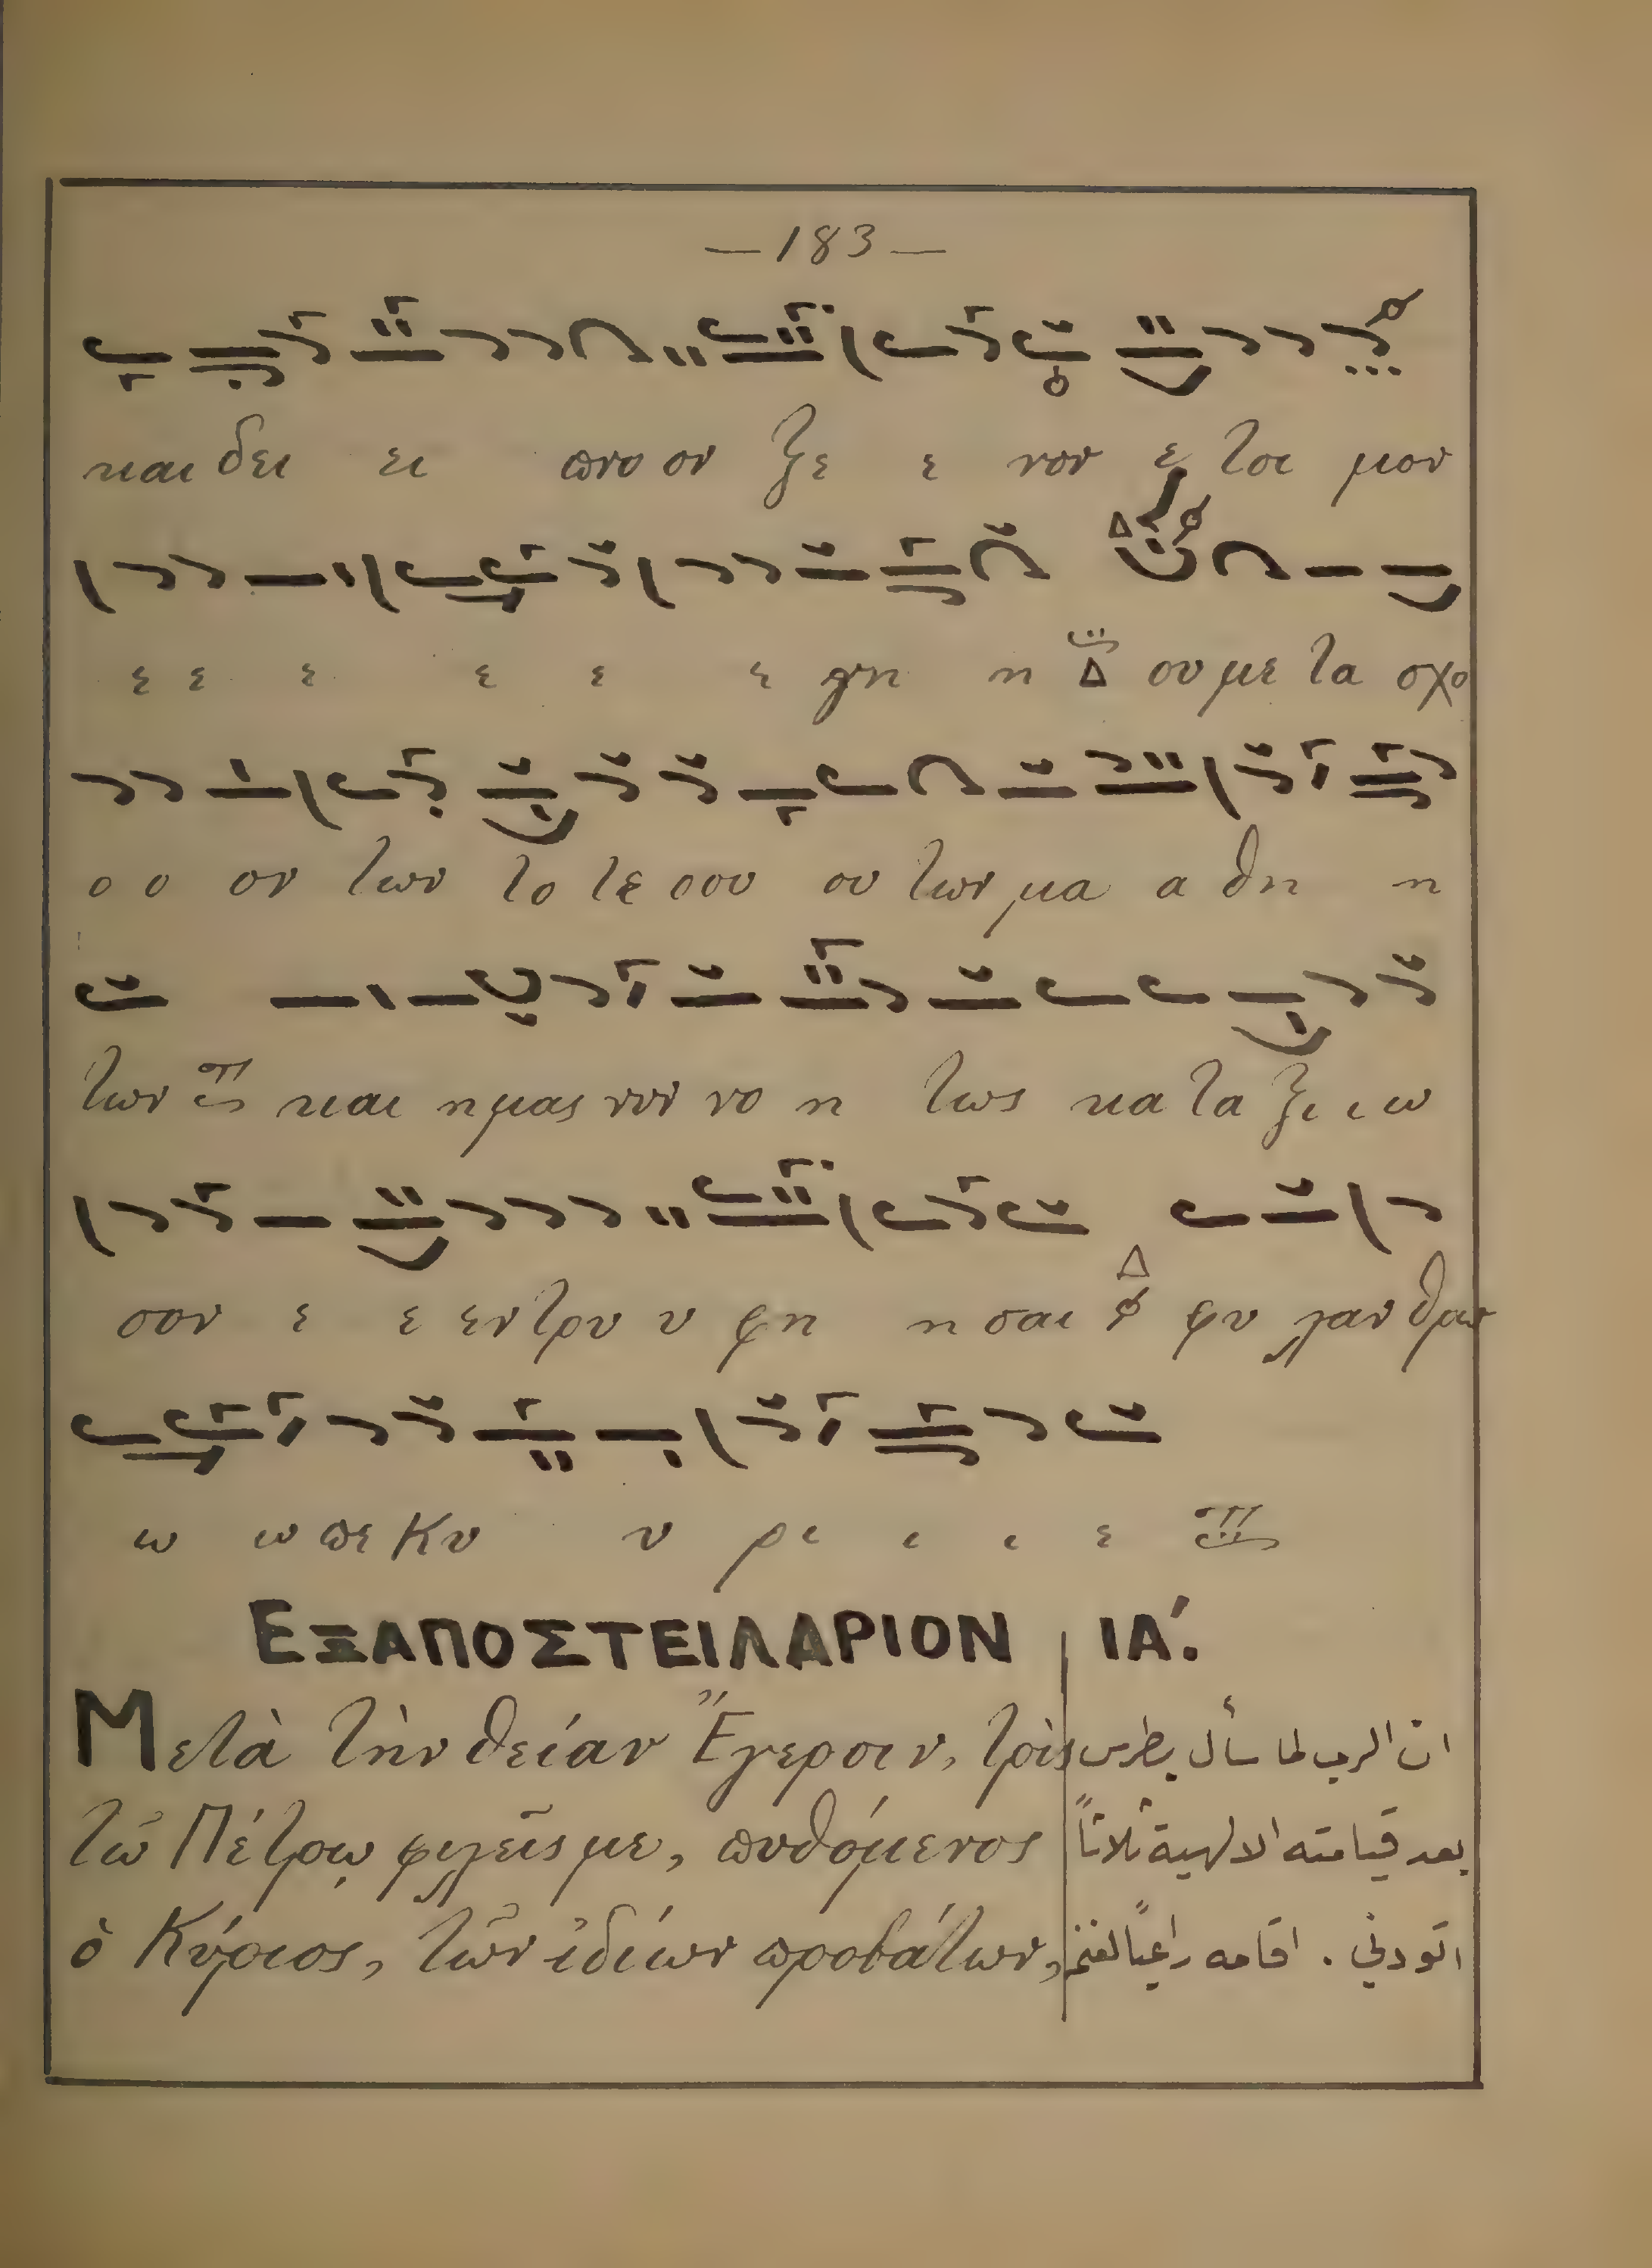 —183—
και δει ει πνο ον ξε ε νον ε τοι μον
ε ε ε ε ε ε γη η Δ ου με τα σχο
ο ο ον των το τε σου ου των μα α θη η
των και ημας νυν νο η τως κα τα ξι ι ω
σον ε ε εν τρυ υ φη η σαι φυ λαν θρω
ω ω πε Κυ υ ρι ι ι ε
ΕΞΑΠΟΣΤΕΙΛΑΡΙΟΝ ΙΑ΄.
Μετὰ τὴν θείαν Ἔγερσιν, τρὶς
τῷ Πέτρῳ φιλεῖς με, πυθόμενος
ὁ Κύριος, τῶν ἰδίων προβάτων,
ان الرب لما سأل بطرس
بعد قيامته الالهية ثلاثاً
اتودني . اقامه راعياً لغنم